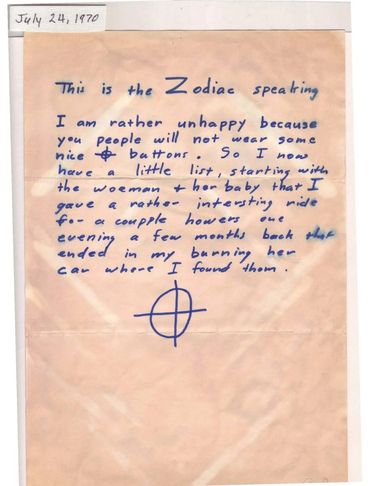 July 24, 1970
This is the Zodiac speaking
I am rather unhappy because
you people will not wear some
nice ⌖ buttons. So I now
have a little list, starting with
the woeman + her baby that I
gave a rather intersting ride
for a coupple howers one
evening a few months back that
ended in my burning her
car where I found them.